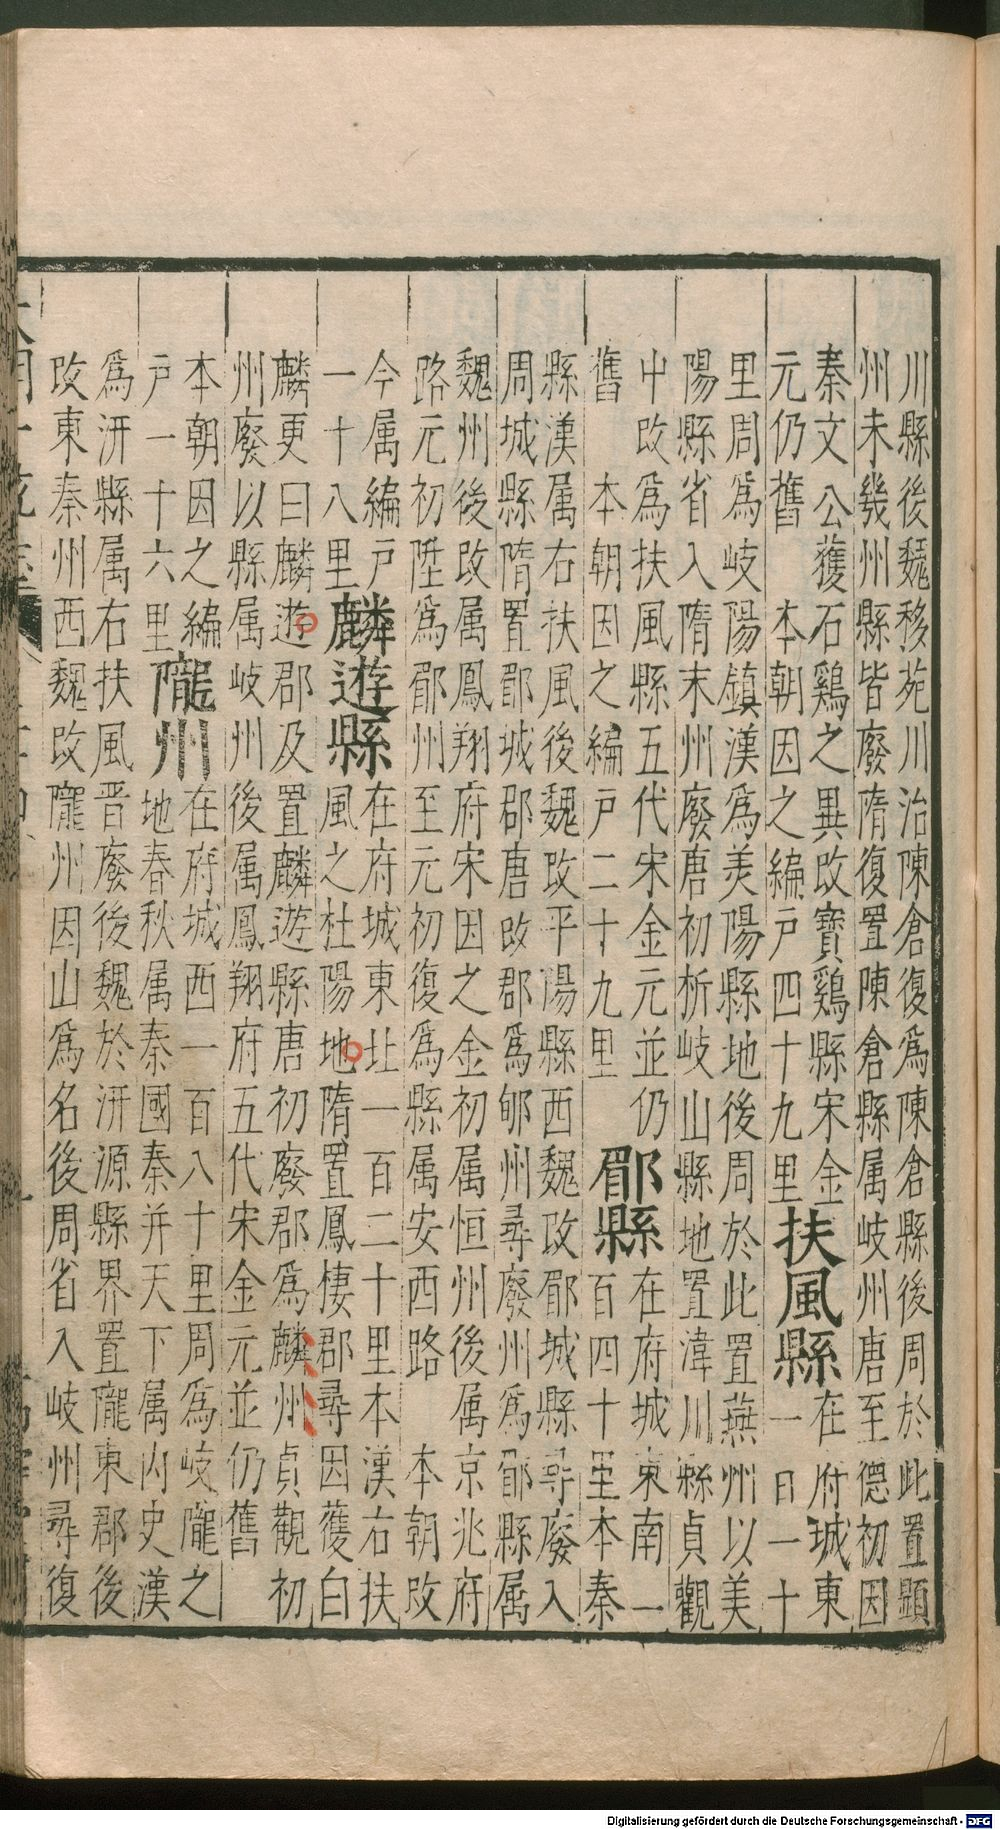 川縣後魏移苑川治陳倉復爲陳倉縣後周於此置顯
州未幾州縣皆廢隋復置陳倉縣属岐州唐至德初因
秦文公獲石鷄之異改寶鷄縣宋金
元仍舊 本朝因之編戶四十九里
扶風縣
在府城東
一日一十
里周爲岐陽鎮漢爲美陽縣地後周於此置燕州以美
陽縣省入隋末州廢唐初析岐山縣地置湋川縣貞觀
中改爲扶風縣五代宋金元並仍
舊 本朝因之編戶二十九里
郿縣
在府城東南一
百四十里本秦
縣漢属右扶風後魏改平陽縣西魏改郿城縣尋廢入
周城縣隋置郿城郡唐改郡爲郇州尋廢州爲郿縣属
魏州後改属鳳翔府宋因之金初属恒州後属京兆府
路元初陞爲郿州至元初復爲縣属安西路 本朝改
今属編戶
一十八里
麟遊縣
在府城東北一百二十里本漢右扶
風之杜陽地隋置鳳棲郡尋因獲白
麟更曰麟遊郡及置麟遊縣唐初廢郡爲麟州貞觀初
州廢以縣属岐州後属鳳翔府五代宋金元並仍舊
本朝因之編
戶一十六里
隴州
在府城西一百八十里周爲岐隴之
地春秋属秦國秦并天下属內史漢
爲汧縣属右扶風晋廢後魏於汧源縣界置隴東郡後
改東秦州西魏改隴州因山爲名後周省入岐州尋復
Digitalisierung gefördert durch die Deutsche Forschungsgemeinschaft - DFG